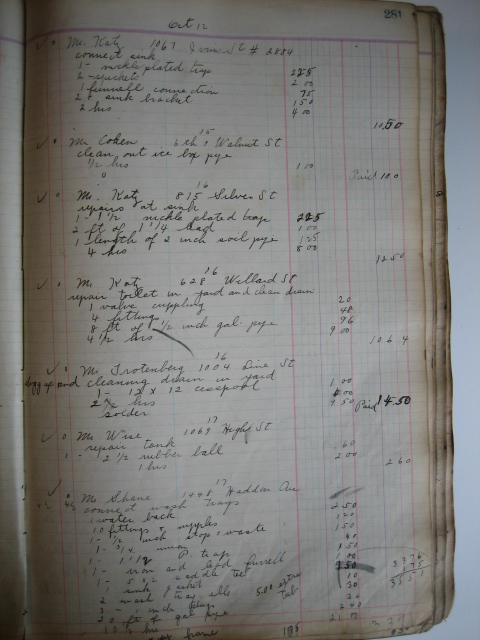 281
Oct 12
Mr. Katz 1067 St # 2884
connect sink
1 - nickle plated trap 225
2 - spickets 2 00
1 funnell connection 75
2 # sink bracket 150
2 hrs 400
10,50
15
Mr Cohen 6th & Walnut St
clean out ice box pipe
1/2 hrs 1 00
Paid 100
16
Mr. Katz 815 Silver St
repairs at sink
1 - 1 1/2 nickle plated trap 225
2 ft of 1 1/4 lead 100
1 length of 2 inch soil pipe 125
4 hrs 8 00
1250
16
Mr. Katz 628 Willard St
repair toilet in yard and clean drain
1 valve cuppling 20
4 fittings 48
8 ft of 1/2 inch gal. pipe 96
4 1/2 hrs 9 00
1064
16
Mr. Trotenberg 1004 Line St
and cleaning drain in yard
1 - 12 x 12 cesspool 1 00
2 hrs
solder 50 Paid 4.50
17
Mr Wise 1069 High St
repair tank
1 - 2 1/2 rubber ball 60
1 hrs 200
260
17
Mr Shane 1448 Haddon Ave
connect wash trays
1 water back 250
10 fittings & nipples 120
1 - 1/2 inch stop & waste 150
1 - 3/4 union 40
1 - 1 1/2 P. trap 150
1 - iron and lead furrell 1 00
1 - saddle tee
1 sink gasket 10
2 wash tray ells 5.00 extra 30
2 - inch plug 36
20 ft of gal pipe 240